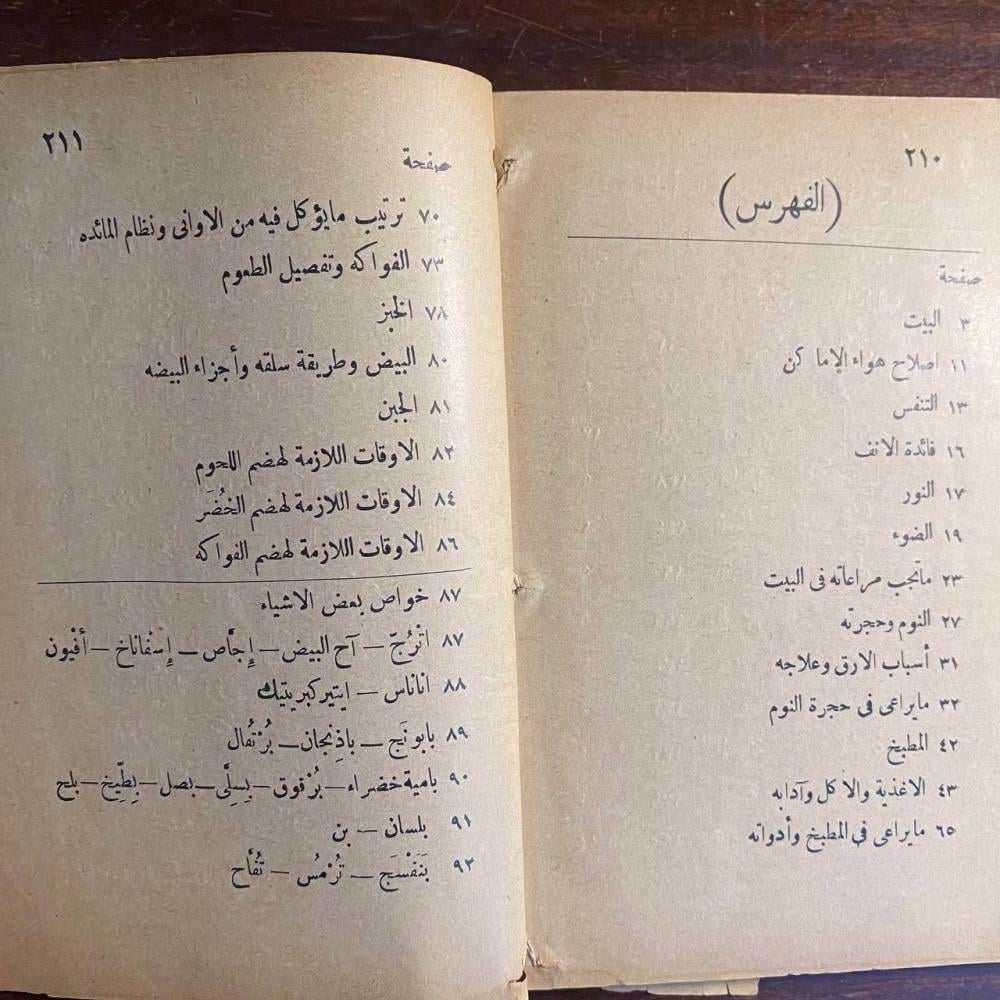 ٢١٠
(الفهرس)
صفحة
٣ البيت
١١ اصلاح هواء الاماكن
١٣ التنفس
١٦ فائدة الانف
١٧ النور
١٩ الضوء
٢٣ ماتجب مراعاته فى البيت
٢٧ النوم وحجرته
٣١ أسباب الارق وعلاجه
٣٢ مايراعى فى حجرة النوم
٤٢ المطبخ
٤٣ الاغذية والاكل وآدابه
٦٥ مايراعى فى المطبخ وأدواته
٢١١
صفحة
٧٠ ترتيب مايؤكل فيه من الاوانى ونظام المائده
٧٣ الفواكه وتفصيل الطعوم
٧٨ الخبز
٨٠ البيض وطريقة سلقه وأجزاء البيضه
٨١ الجبن
٨٢ الاوقات اللازمة لهضم اللحوم
٨٤ الاوقات اللازمة لهضم الخُضَر
٨٦ الاوقات اللازمة لهضم الفواكه
٨٧ خواص بعض الاشياء
٨٧ اتْرُجّ – آح البيض – إِجَّاص – إِسْفَاناخ – أفْيون
٨٨ اناناس – ايتيركبريتيك
٨٩ بابونَج – باذِنجان – بُرْتقُال
٩٠ بامية خضراء – بُرْقوق – بِسِلَّى – بصل – بِطِّيخ – بلح
٩١ بلسان – بن
٩٢ بَنَفْسَج – تُرْمُس – تُفَّاح